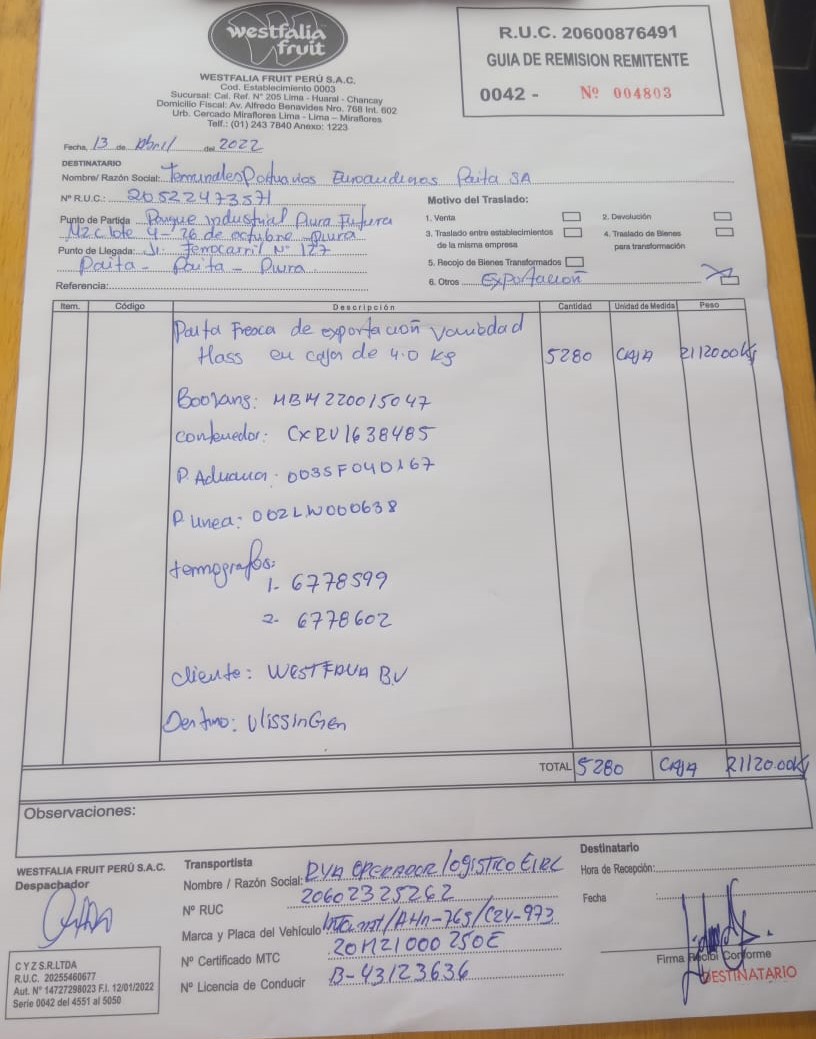 westfalia
fruit
WESTFALIA FRUIT PERÚ S.A.C.
Cod. Establecimiento 0003
Sucursal: Cal. Ref. N° 205 Lima - Huaral - Chancay
Domicilio Fiscal: Av. Alfredo Benavides Nro. 768 Int. 602
Urb. Cercado Miraflores Lima - Lima – Miraflores
Telf.: (01) 243 7840 Anexo: 1223
R.U.C. 20600876491
GUIA DE REMISION REMITENTE
0042 - Nº 004803
Fecha, 13 de Abril del 2022
DESTINATARIO
Nombre/ Razón Social: Terminales Portuarios Euroandinos Paita SA
N° R.U.C.: 20522473571
Punto de Partida Parque industrial Piura Futura
MZ C lote 4 - 26 de octubre - Piura
Punto de Llegada: Jr. Ferrocarril N° 127
Paita - Paita - Piura
Referencia:
Motivo del Traslado:
1. Venta
2. Devolución
3. Traslado entre establecimientos
de la misma empresa
4. Traslado de Bienes
para transformación
5. Recojo de Bienes Transformados
6. Otros Exportación
Item. Código Descripción Cantidad Unidad de Medida Peso
Palta Fresca de exportación variedad
Hass en cajas de 4.0 kg 5280 CAJA 21120.00Kg
Booking: MBM220015047
Contenedor: CXRU1638485
P. Aduana: 003SF040167
P. Linea: 002LW000638
termografos:
1- 6778599
2- 6778602
Cliente: WESTFALIA B.V
Destino: VlissinGen
TOTAL 5280 CAJA 21120.00Kg
Observaciones:
WESTFALIA FRUIT PERÚ S.A.C.
Despachador
Transportista
Nombre / Razón Social: RYA OPERADOR logistico EIRL
N° RUC 20602325262
Marca y Placa del Vehículo
N° Certificado MTC 20M21000250E
N° Licencia de Conducir B-43123636
Destinatario
Hora de Recepción:
Fecha :
Firma Recibí Conforme
DESTINATARIO
C Y Z S.R.LTDA
R.U.C. 20255460677
Aut. N° 14727298023 F.I. 12/01/2022
Serie 0042 del 4551 al 5050